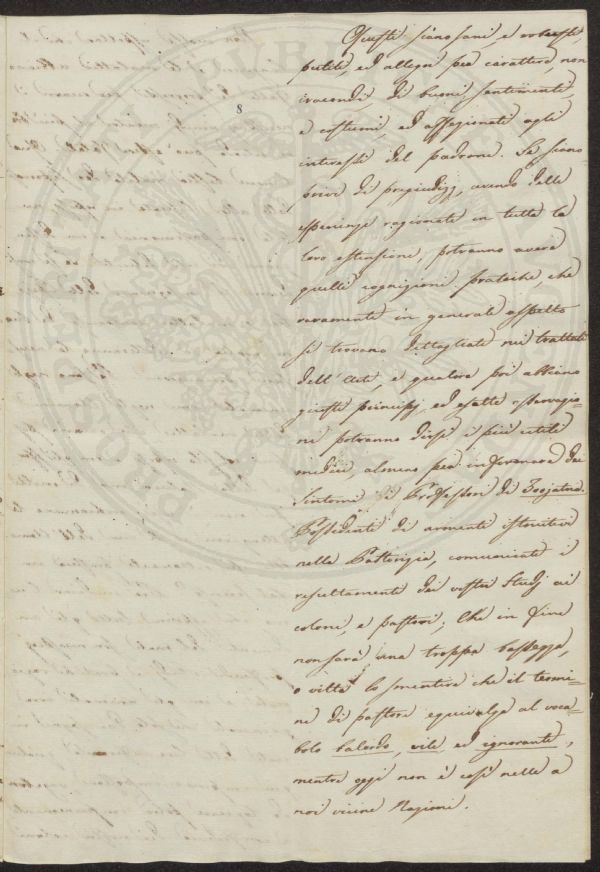 8
Questi siano sani e robusti,
puliti, ed allegri per carattere, non
iracondi, di buoni sentimenti,
e costumi, ed affezionati agli
interessi del padrone. Se siano
privi di pregiudizj, avendo delle
sperienze ragionate in tutta la
loro estensione, potranno avere
quelle cognizioni pratiche, che
raramente in generale aspetto
si trovano dettagliate nei trattati
dell'Arte, e qualora poi abbino
giusti principj, ed esatte osservazio=
ni potranno dirsi i più utili
medici, almeno per informare dei
Sintomi i Professori di Zoojatria.
Possidenti di armenti istruitevi
nella Pastorizia, comunicate i
resultamenti dei vostri Studj ai
coloni, e pastori; Che in fine
non sarà una troppa bassezza,
o viltà lo smentire che il termi=
ne di pastore equivalga al voca=
bolo balordo, vile, ed ignorante,
mentre oggi non è così nelle a
noi vicine Nazioni.